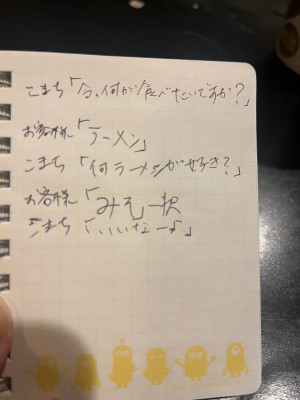 こまち「今、何が食べたいですか?」
お客様「ラーメン」
こまち「何ラーメンが好き?」
お客様「みそ一択
こまち「いいなーよ」